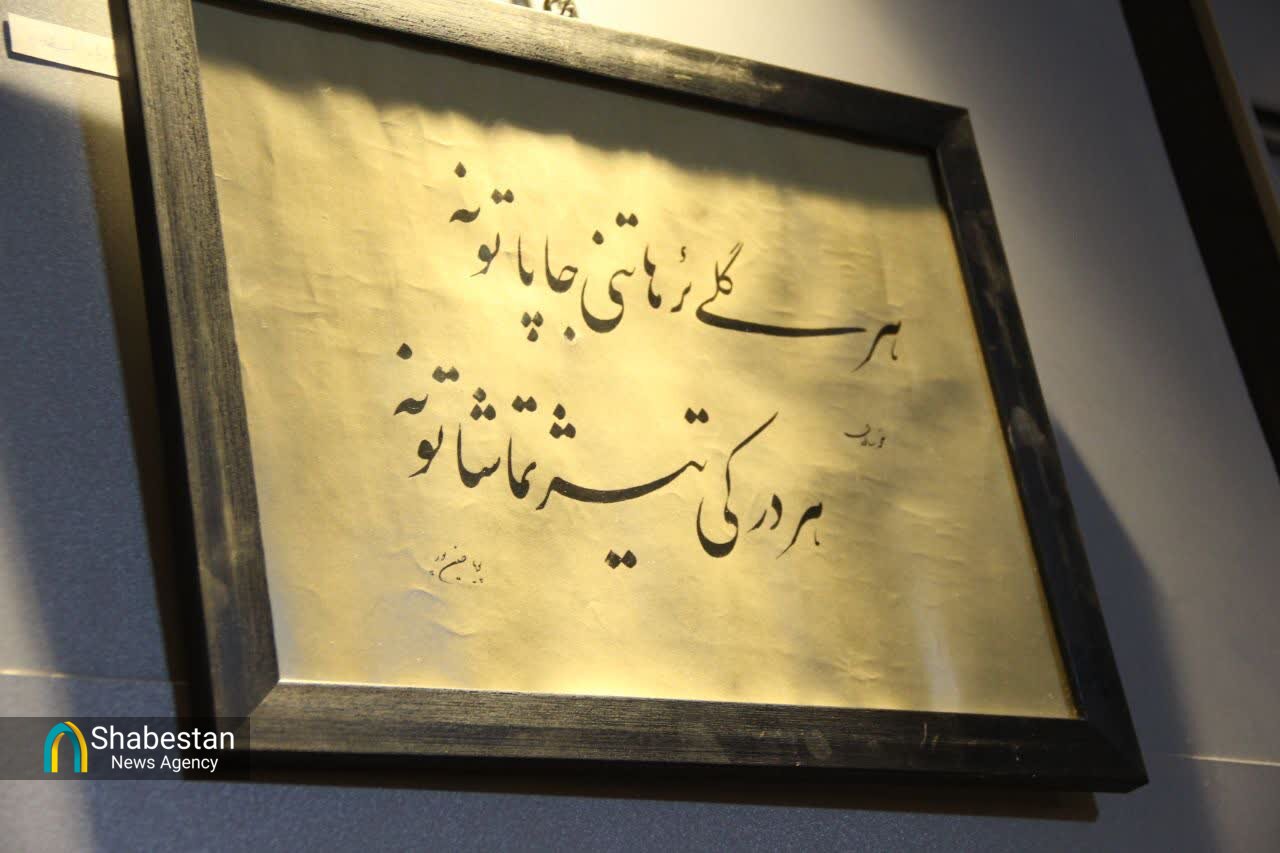 هر گلے ئر هاتنی جا پا تونه
هر در کی تیتر تماشا تونه
Shabestan
News Agency